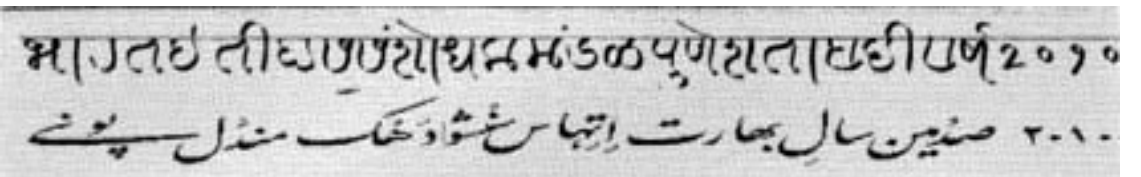 भारत इतीहास संशोधक मंडळ पुणे शताब्दी वर्ष २०१०
۲۰۱۰ صدمین سالِ بھارت اِتِہاس سنشودَھک مندل پونے